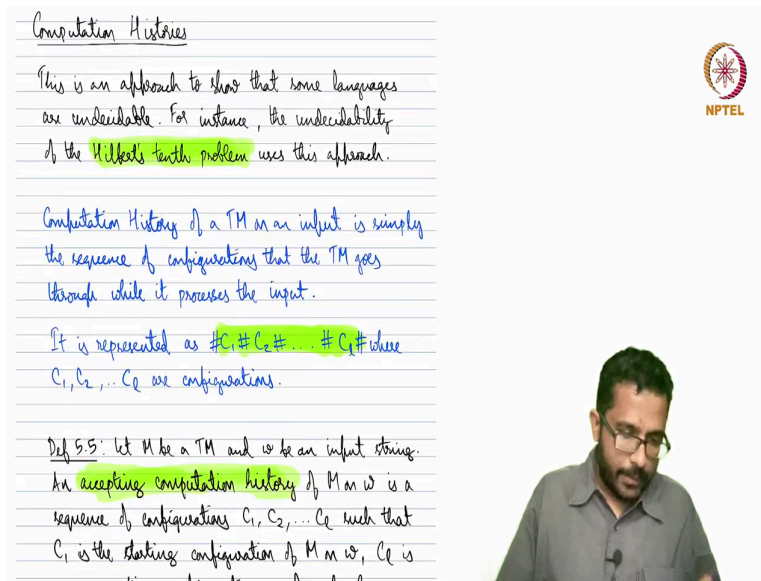 Computation Histories
NPTEL
This is an approach to show that some languages
are undecidable. For instance, the undecidability
of the Hilbert's tenth problem uses this approach.
Computation History of a TM on an input is simply
the sequence of configurations that the TM goes
through while it processes the input.
It is represented as #C₁#C₂#....#Cℓ# where
C₁, C₂, .. Cℓ are configurations.
Def 5.5: Let M be a TM and w be an input string.
An accepting computation history of M on w is a
sequence of configurations C₁, C₂, ... Cℓ such that
C₁ is the starting configuration of M on w, Cℓ is